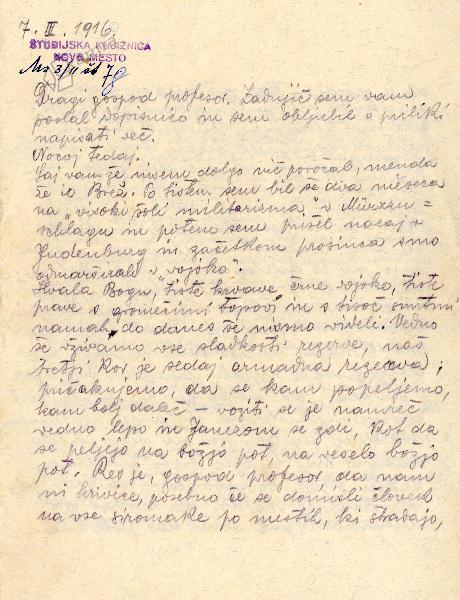 7. III. 1916.
ŠTUDIJSKA KNJIŽNICA
NOVO MESTO
Ms 3/II št 7g
Dragi gospod profesor. Zadnjič sem vam
poslal dopisnico in sem obljubil o priliki
napisati več.
Nocoj tedaj.
Saj vam že nisem dolgo nič poročal, menda
že iz Brež. Po tistem sem bil še dva meseca
na „visoki šoli militarizma" v Mürzzu=
schlagu in potem sem prišel nazaj v
Judenburg in začetkom prosinca smo
odmarširali v „vojsko".
Hvala Bogu, tiste krvave črne vojske, tiste
prave z gromečimi topovi in s tisoč smrtmi
namah, do danes še nismo videli. Vedno
še uživamo vse sladkosti rezerve, naš
tretji kor je sedaj armadna rezerva;
pričakujemo, da se kam popeljemo,
kam bolj daleč — voziti se je namreč
vedno lepo in Janezom se zdi, kot da
se peljejo na božjo pot, na veselo božjo
pot. Res je, gospod profesor, da nam
ni krivice, posebno če se domisli človek
na vse siromake po mestih, ki stradajo,